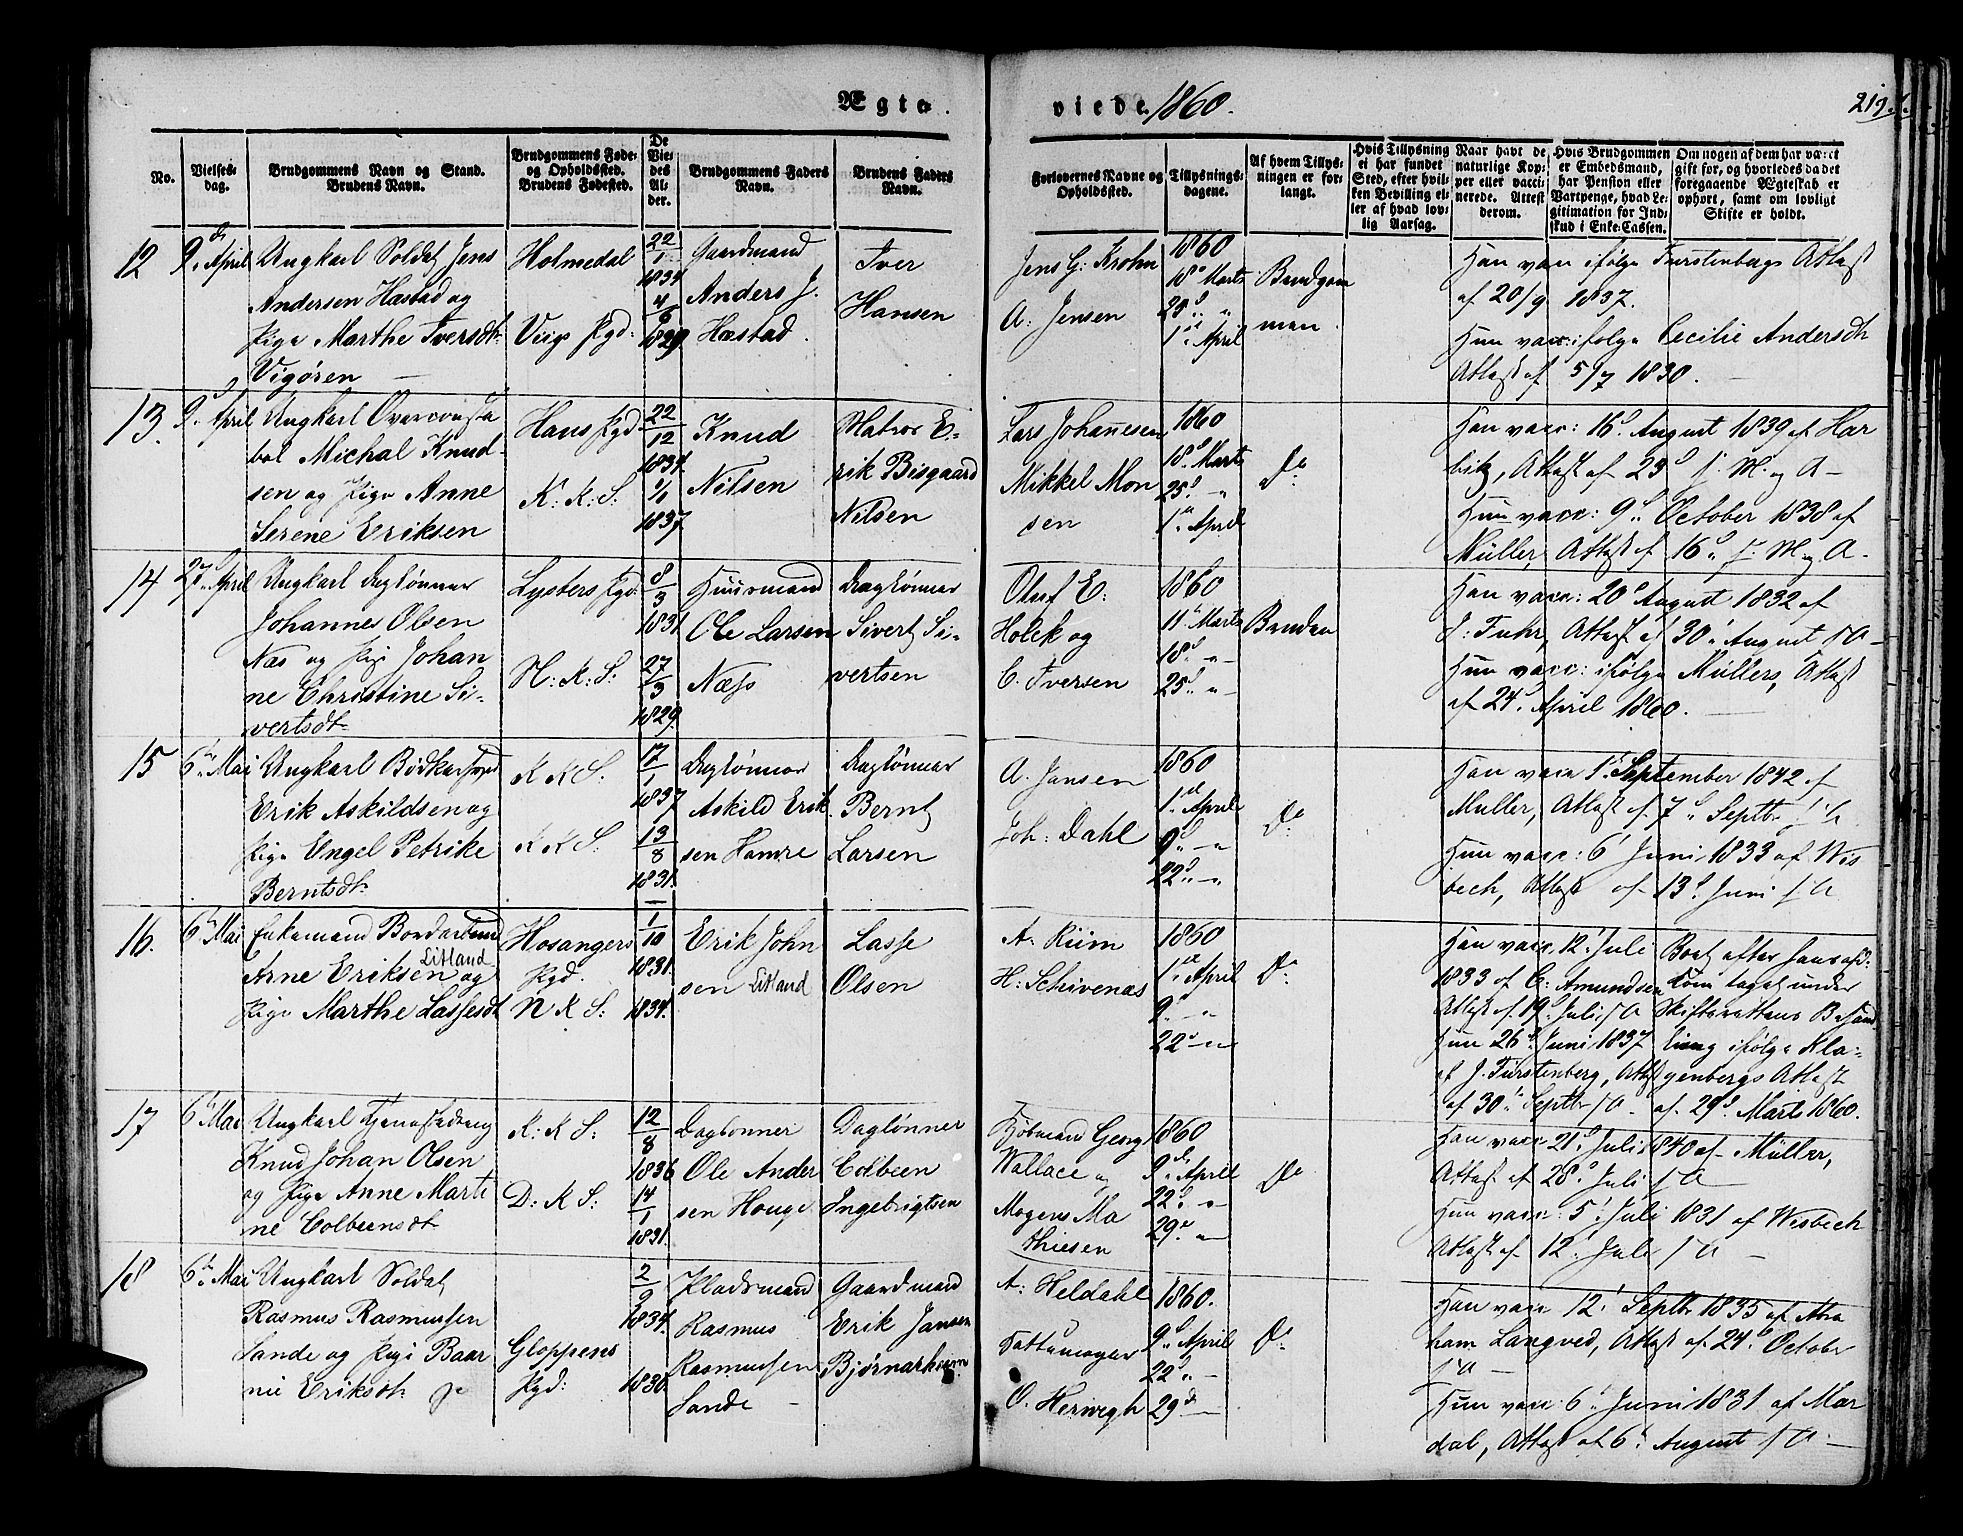 Ægte
viede 1860.
No.
Vielses-
dag.
Brudgommens Navn og Stand.
Brudens Navn.
Brudgommens Føde-
og Opholdssted.
Brudens Fødested.
De
Vie-
des
Al-
der.
Brudgommens Faders
Navn.
Brudens Faders
Navn.
Forlovernes Navne og
Opholdssted.
Tillysnings-
dagene.
Af hvem Tillys-
ningen er for-
langt.
Hvis Tillysning
ei har fundet
Sted, efter hvil-
ken Bevilling el-
ler af hvad lov-
lig Aarsag.
Naar havt de
naturlige Kop-
per eller vacci-
nerede. Attest
derom.
Hvis Brudgommen
er Embedsmand,
har Pension eller
Vartpenge, hvad Le-
gitimation for Ind-
skud i Enke-Cassen.
Om nogen af dem har været
gift før, og hvorledes da det
foregaaende Ægteskab er
ophørt, samt om lovligt
Skifte er holdt.
12
9d April
Ungkarl Soldat Jens
Andersen Hæstad og
Pige Marthe Iversdt:
Vigøren
Holmedal
Viigs Pgd:
22/1
1834
4/6
1829
Gaardmand
Anders J.
Hæstad
Iver
Hansen
Jens G: Krohn
A: Jensen
1860
18d Marts
25d "
1d April
Brudgom
men
Han vacc: ifølge Furstenbergs Attest
af 20/9 1837.
Hun vacc: ifølge Cecilie Andersdt
Attest af 5/7 1830.
13.
9d April
Ungkarl Overconsta
bel Michal Knud-
sen og Pige Anne
Serene Eriksen
Haus Pgd
K: K: S:
22/12
1834
1/1
1837
Knud
Nilsen
Matros E-
rik Bisgaard
Nilsen
Lars Johannesen
Mikkel Mon
sen
1860
18d Marts
25d "
1d April
Do
Han vacc: 16d August 1839 af Har
bitz, Attest af 23d s: M: og A-
Hun vacc: 9d October 1838 af
Müller, Attest af 16d s: M. og A.
14
27d April
Ungkarl Daglønner
Johannes Olsen
Næs og Pige Johan
ne Christine Si-
vertsdt
Lysters Pgd
H: K: S:
8/3
1831
27/3
1829
Huusmand
Ole Larsen
Næss
Daglønner
Sivert Si-
vertsen
Oluf E:
Holck og
C. Iversen
1860
11d Marts
18d "
25d "
Bruden
Han vacc: 20d August 1832 af
J: Fuhr, Attest af 30d August s A-
Hun vacc: ifølge Müllers, Attest
af 24d April 1860.
15
6d Mai
Ungkarl
Erik Askildsen og
Pige Engel Petrike
Berntsdt
K K S:
K K S:
17/1
1837
13/8
1831.
Daglønner
Askild Erik
sen Hamre
Daglønner
Bernt
Larsen
A. Jansen
Joh: Dahl
1860
1d April
9d "
22d "
Do
Han vacc 1d September 1842 af
Muller, Attest af 7d Septbr s: A
Hun vacc: 6d Juni 1833 af Wis
bech, Attest af 13d Juni s A
16.
6d Mai
Enkemand
Arne Eriksen Litland og
Pige Marthe Lassesdt
Hosangers
Pgd.
N K S:
1/10
1831.
1834.
Erik John
sen Litland
Lasse
Olsen
A: Riim
H: Schivenas
1860
1d April
9d "
22d "
Do
Han vacc 12d Juli
1833 af C: Amundsen
Attest af 19d Juli s A
Hun 26d Juni 1837
af J. Fürstenberg, Attest
af 30d Septbr s A.
Boet efter
taget under
Skifterettens Behand
ling ifølge Kla-
genbergs Attest
af 29d Marts 1860.
17
6d Mai
Ungkarl
Knud Johan Olsen
og Pige Anne Marti
ne Colbeensdt
K: K S:
D: K S:
12/8
1836
14/1
1831.
Daglønner
Ole Ander
sen Houge
Daglønner
Colbeen
Ingebrigtsen
Kjøbmand Georg
Wallace og
Mogens Ma
thiesen
1860
9d April
22d "
29d "
Do
Han vacc 21d Juli 1840 af Müller,
Attest af 28d Juli s A
Hun vacc: 5d Juli 1831 af Wisbech
Attest af 12d Juli s A
18
6d Mai
Ungkarl Soldat
Rasmus Rasmussen
Sande og Pige Baar
nie Eriksdt
Gloppens
Pgd:
2/9
1834.
1830.
Pladsmand
Rasmus
Rasmussen
Sande
Gaardmand
Erik Jansen
Bjørnarheim
A: Heldahl
O. Herwegh
1860.
9d April
22d "
29d
Do
Han vacc 12d Septbr 1835 af Abra
ham Langved, Attest af 24d October
s A
Hun vacc: 6d Juni 1831 af Mar
dal, Attest af 6d August s A